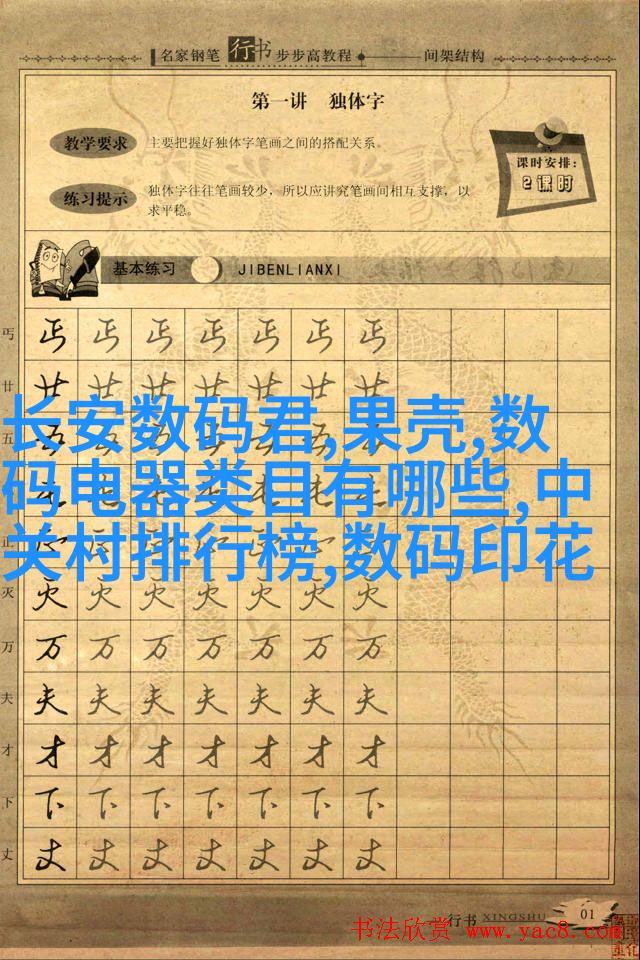 名家钢笔行书步步高教程 间架结构
第一讲 独体字
教学要求 主要把握好独体字笔画之间的搭配关系。
课时安排:
2课时
练习提示 独体字往往笔画较少，所以应讲究笔画间相互支撑，以
求平稳。
基本练习 JIBENLIANXI
丐 丐 丐 丐 丐 丐 丐 丐
廿 廿 廿 廿 廿 廿 廿 廿
长安数码君,果壳,数
五
码电器类目有哪些,中
正
关村排行榜,数码印花
灭 灭 灭 灭 灭 灭 灭 灭
万 万 万 万 万 万 万 万
夫 夫 夫 夫 夫 夫 夫 夫
才 才 才 才 才 才 才 才
下 下 下 下 下 下 下 下
丈 丈 丈 丈 丈 丈 丈 丈
行书 XINGSHU 01
书法欣赏 www.yac8.com